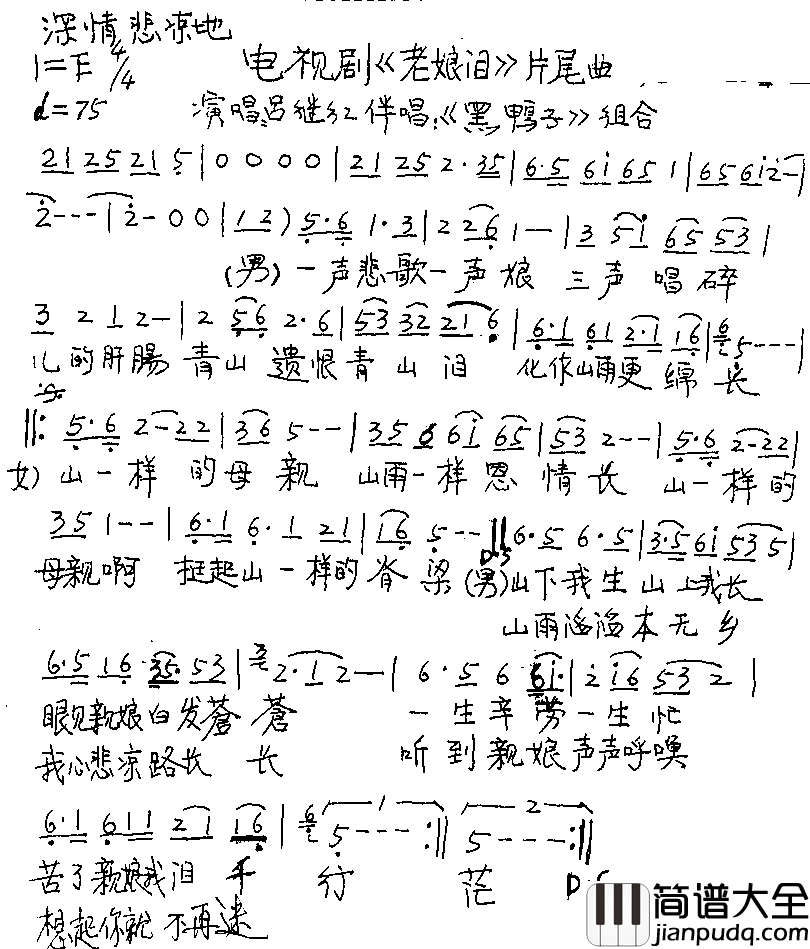 深情悲凉地
1=F 4/4
电视剧《老娘泪》片尾曲
♩=75 演唱:吕继红 伴唱:《黑鸭子》组合
21 25 21 5 | 0 0 0 0 | 21 25 2· 35 | 6·5 6i 65 1 | 65 6i 2 - |
2 - - - | 2 - 0 0 | 1 2 ) 5·6 1·3 | 2 26 1 - - | 3 5i 65 53 |
(男) 一声悲歌一声娘 三声唱碎
3 2 1 2 - | 2 56 2·6 | 53 32 21 6 | 6·1 61 2·1 16 | 5 - - - |
儿的肝腸 青山遗恨青山泪 化作山雨更绵长
‖: 5·6 2 - 22 | 36 5 - - | 35 6 6i 65 | 53 2 - - | 5·6 2 - 22 |
女) 山一样的母亲 山雨一样恩情长 山一样的
35 1 - - | 6·1 6·1 21 | 16 5 - - ‖ 6·5 6·5 | 3·5 6i 53 5 |
D.S
母亲啊 挺起山一样的脊梁 (男)山下我生山上我长
山雨滔滔本无乡
6·5 16 35· 53 | 2·1 2 - | 6·5 6 6i· | 2 i6 53 2 |
眼见亲娘白发蒼蒼 一生辛劳一生忙
我心悲凉路长长 听到亲娘声声呼唤
6·1 611 21 16 | 5 - - - :‖ 5 - - - :‖
苦了亲娘我泪千行 茫 D.C
想起你就不再迷
简谱大全
jianpudq.com